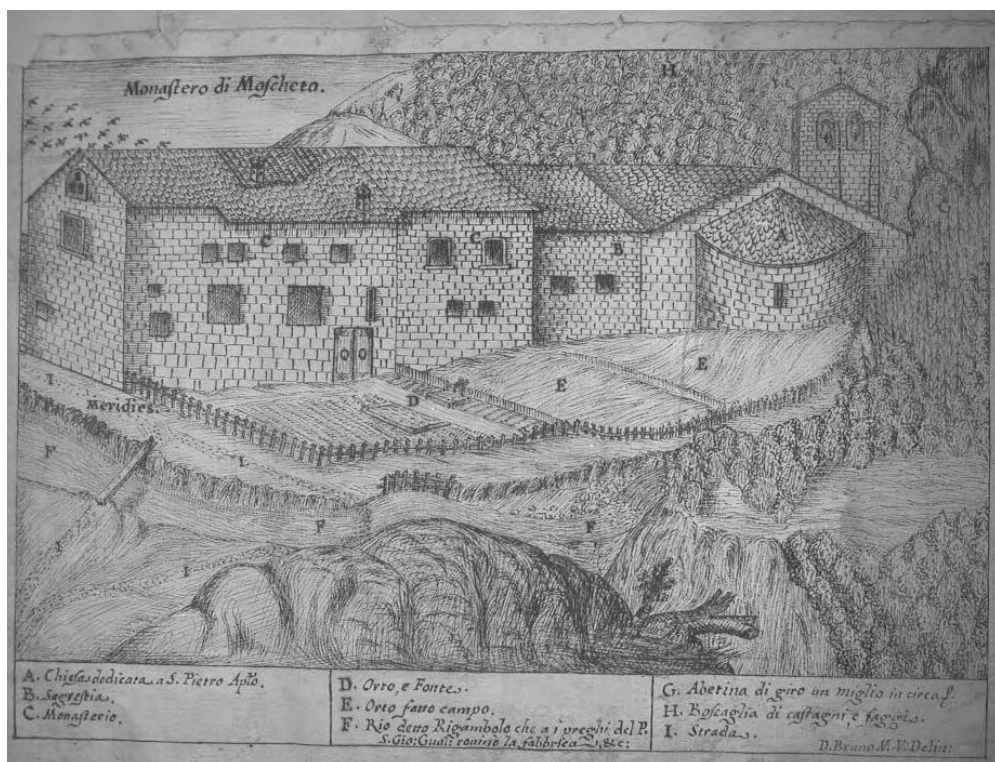 Monastero di Moscheto.
H
A
C
C
B
G
E
E
D
I
Meridies.
F
I
F
F
I
I
A. Chiesa dedicata a S. Pietro Ap̃to.
B. Sagrestia.
C. Monasterio.
D. Orto, e Fonte.
E. Orto fatto campo.
F. Rio detto Rigambolo che a i preghi del P.
S. Gio: Gual: rovinò la fabbrica, &c:
G. Abetina di giro un miglio in circa
H. Boscaglia di castagni e faggi.
I. Strada.
D. Bruno M. V. Delin: